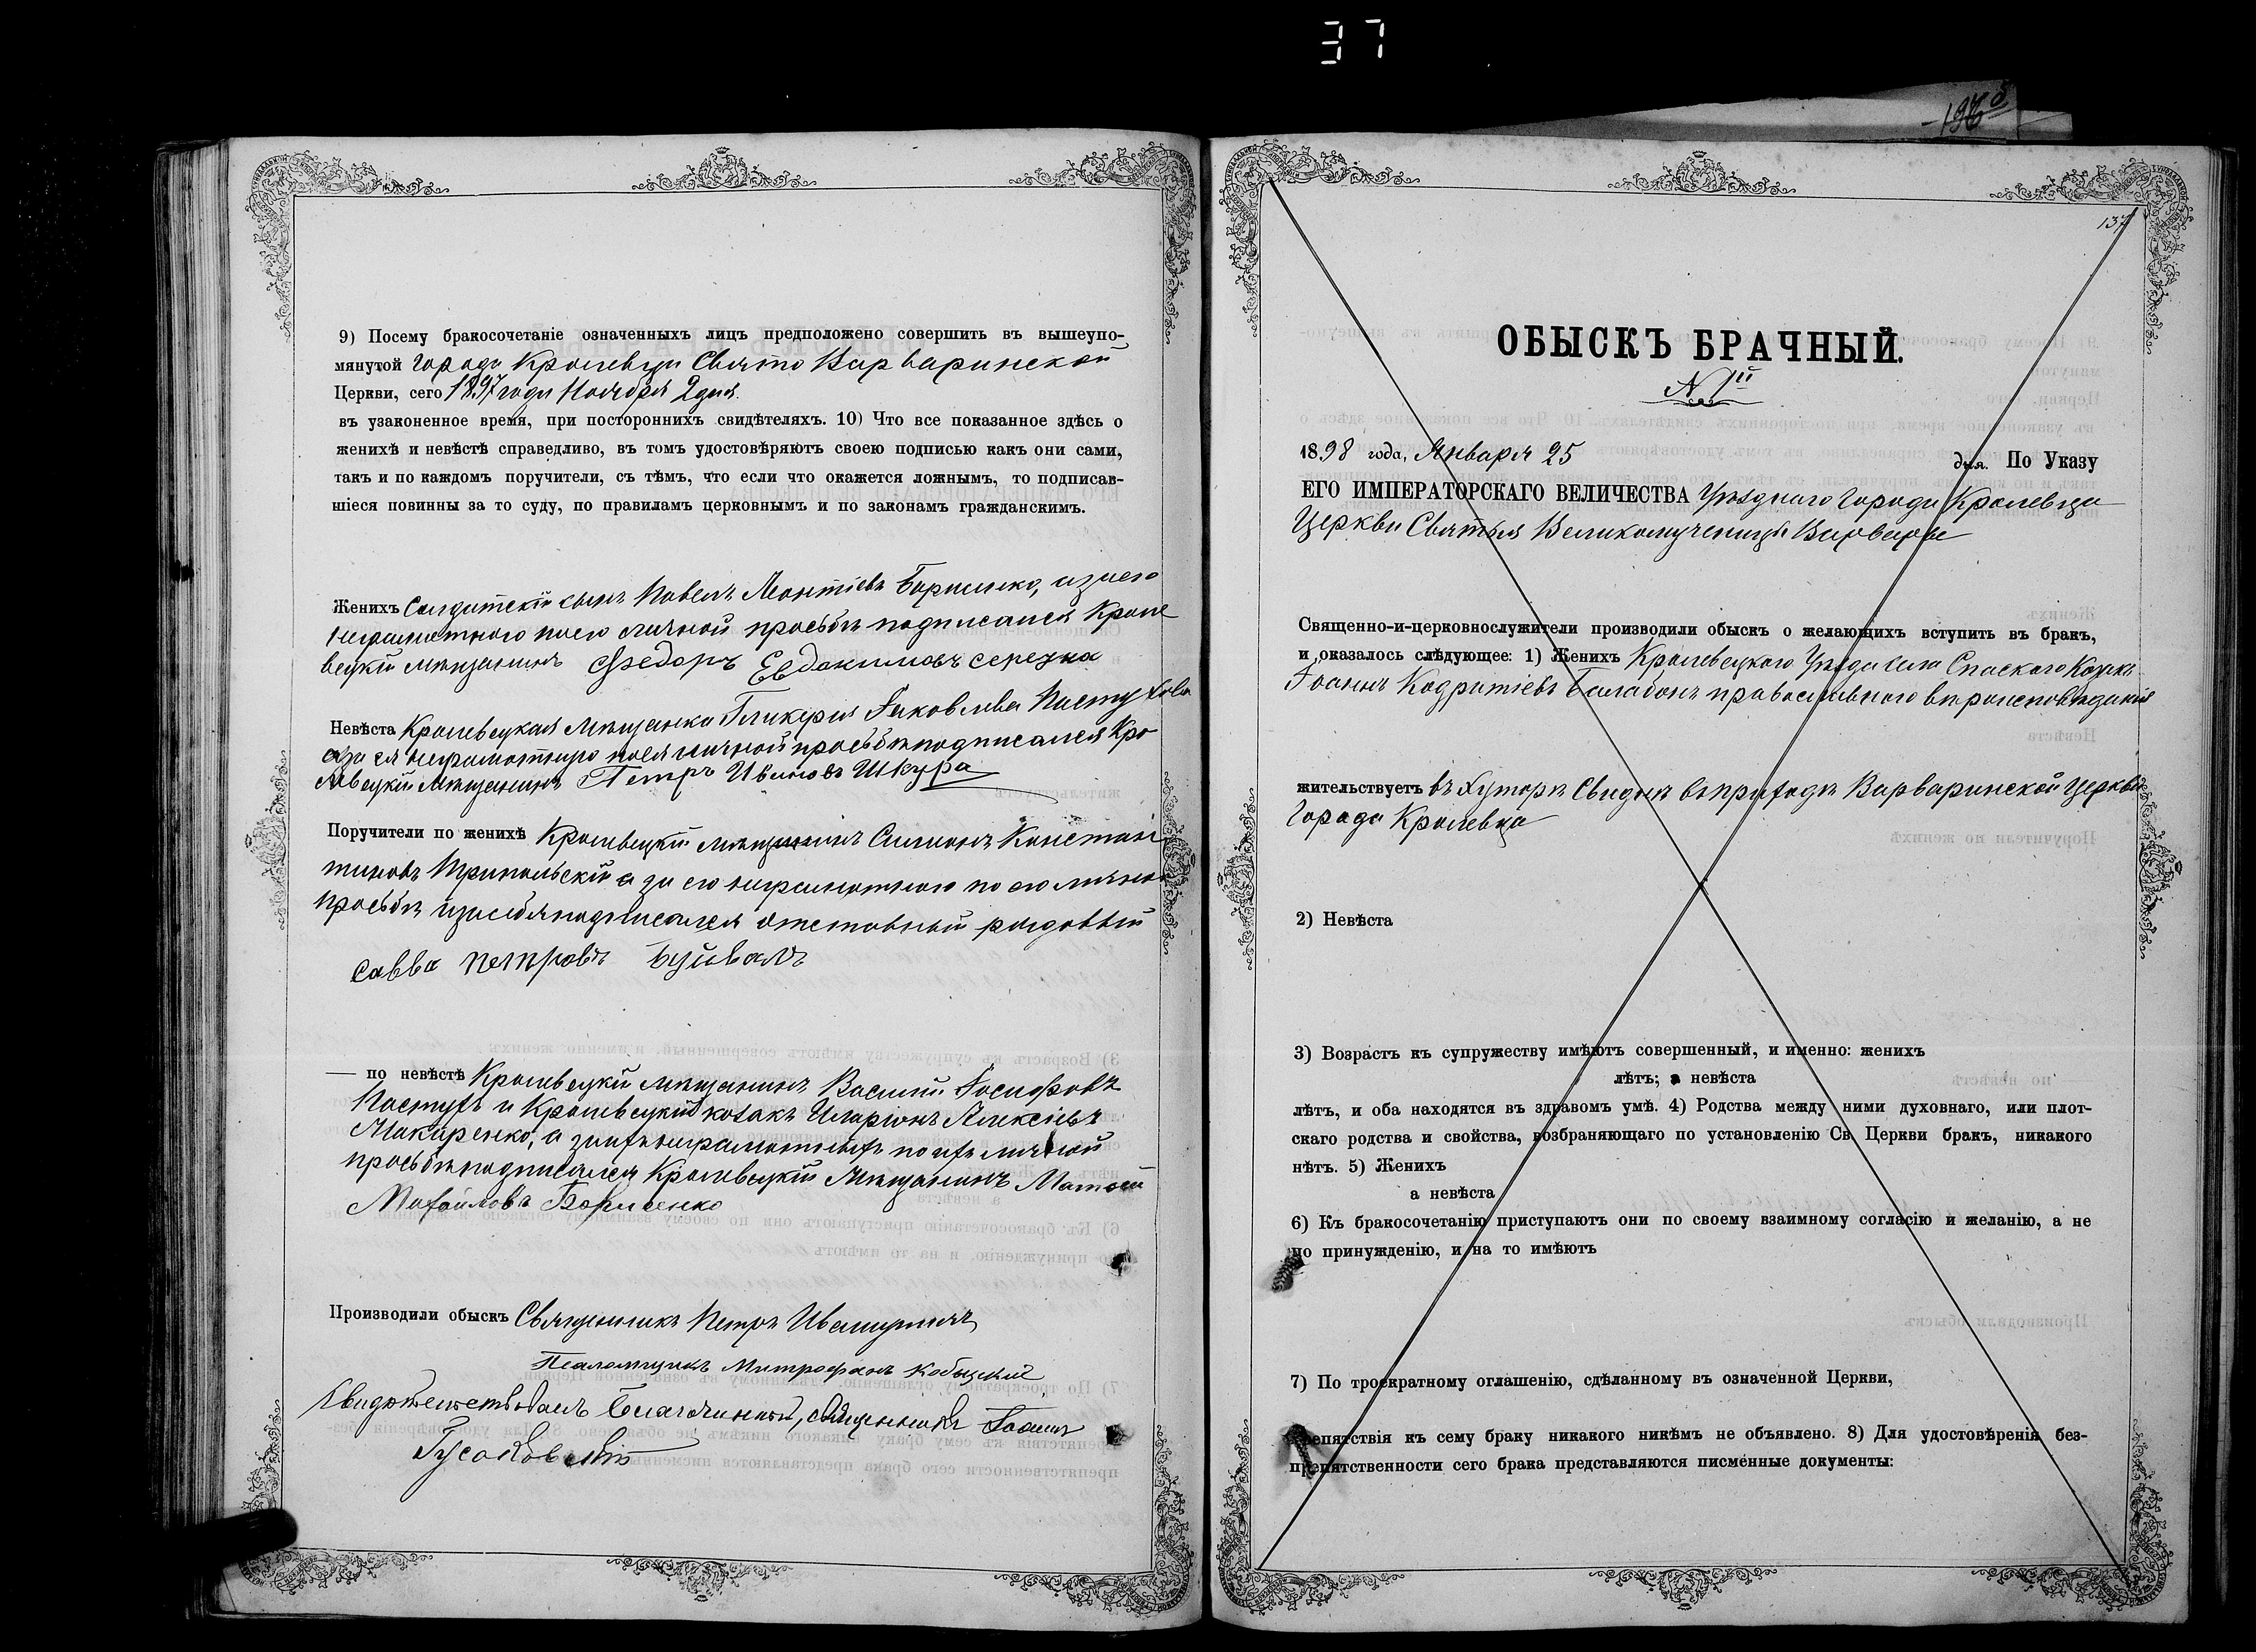 37
9) Посему бракосочетаніе означенныхъ лицъ предположено совершить въ вышеупо-
мянутой города Кролевца Свято Варваринской
Церкви, сего 1897 года Ноября 2 дня.
въ узаконенное время, при постороннихъ свидѣтеляхъ. 10) Что все показанное здѣсь о
женихѣ и невѣстѣ справедливо, въ томъ удостовѣряютъ своею подписью какъ они сами,
такъ и по каждомъ поручители, съ тѣмъ, что если что окажется ложнымъ, то подписав-
шіеся повинны за то суду, по правиламъ церковнымъ и по законамъ гражданскимъ.
Женихъ Солдатскій сынъ Павелъ Леонтіевъ Борисенко, а за его
неграмотного по его личной просьбѣ подписался Кроле
вецкій мѣщанинъ Федоръ Евдокимовъ Середка
Невѣста Кролевецкая мѣщанка Гликерія Іаковлева Пастухова
а за ея неграмотную по ея личной просьбѣ подписался Кро
левецкій мѣщанинъ Петръ Ивановъ Шкура
Поручители по женихѣ Кролевецкій мѣщанинъ Симонъ Констан
тиновъ Трипольскій а за его неграмотного по его личной
просьбѣ и за себя подписался отставный рядовый
Савва Петровъ Буйвалъ
— по невѣстѣ Кролевецкій мѣщанинъ Василій Іосифовъ
Пастухъ и Кролевецкій козакъ Иларіонъ Алексіевъ
Макаренко, а за ихъ неграмотныхъ по ихъ личной
просьбѣ подписался Кролевецкій Мѣщанинъ Матвей
Михайловъ Борисенко
Производили обыскъ Священникъ Петръ
Псаломщикъ Митрофанъ Кобыцкій
Свидѣтельствовалъ Благочинный, священникъ Іоаннъ
Гусаковскій
196
137
ОБЫСКЪ БРАЧНЫЙ.
N 1й
1898 года, Января 25 дня. По Указу
ЕГО ИМПЕРАТОРСКАГО ВЕЛИЧЕСТВА Уѣзднаго Города Кролевца
Церкви Святыя Великомученицы Варвары
Священно-и-церковнослужители производили обыскъ о желающихъ вступить въ бракъ,
и оказалось слѣдующее: 1) Женихъ Кролевецкого Уѣзда села Спаского Козакъ
Іоаннъ Кодратіевъ Балабонъ православного вѣроисповѣданія
жительствуетъ въ Хуторѣ Свиднѣ въ приходѣ Варваринской Церкви
Города Кролевца
2) Невѣста
3) Возрастъ къ супружеству имѣютъ совершенный, и именно: женихъ
лѣтъ; а невѣста
лѣтъ, и оба находятся въ здравомъ умѣ. 4) Родства между ними духовнаго, или плот-
скаго родства и свойства, возбраняющаго по установленію Св. Церкви бракъ, никакого
нѣтъ. 5) Женихъ
а невѣста
6) Къ бракосочетанію приступаютъ они по своему взаимному согласію и желанію, а не
по принужденію, и на то имѣютъ
7) По троекратному оглашенію, сдѣланному въ означенной Церкви,
препятствія къ сему браку никакого никѣмъ не объявлено. 8) Для удостовѣренія без-
препятственности сего брака представляются писменные документы: